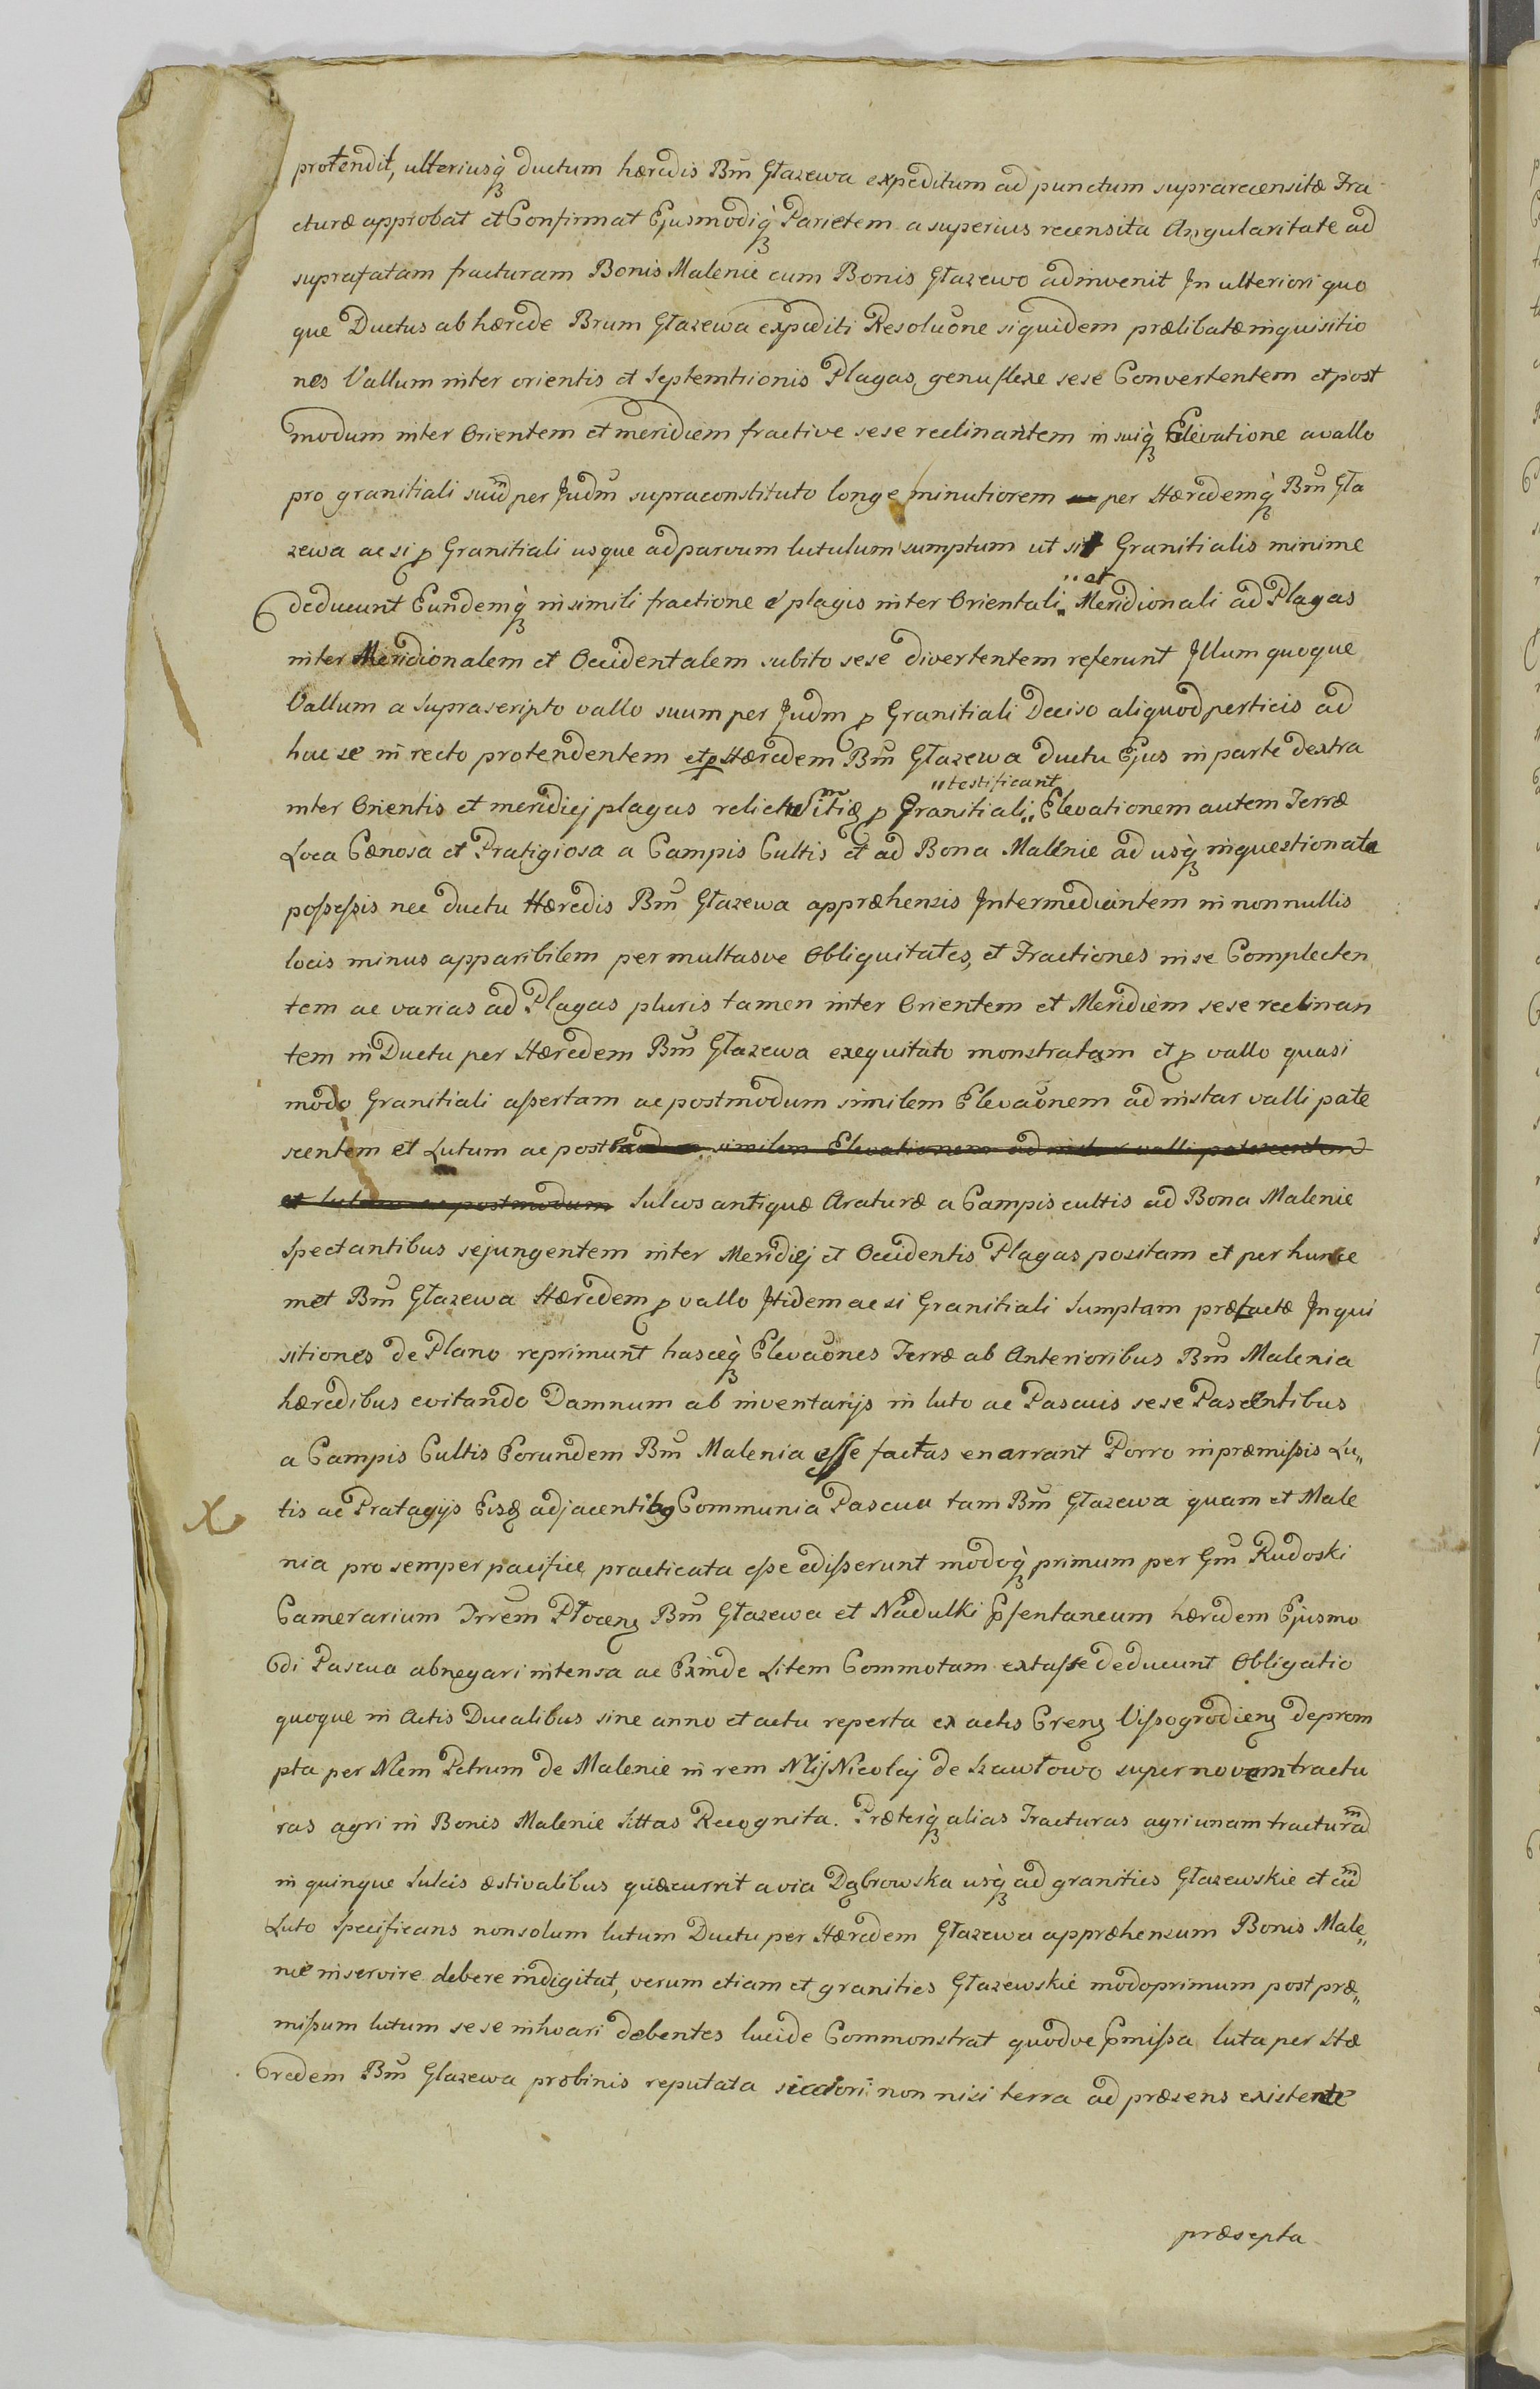 protendit, ulteriusq̀ʒ ductum hæredis Bm̄ Głazewa expeditum ad punctum suprarecensitæ Fra
cturæ approbat et Confirmat Ejusmodiq̀ʒ Parietem a superius recensita Angularitate ad
suprafatam fracturam Bonis Malenie cum Bonis Głazewo adinvenit In ulteriori quo
que Ductus ab hærede Brum Głazewa expediti Resoluōne siquidem prælibatæ inquisitio
nes Vallum inter orientis et Septemtrionis Plagas genuflexe sese Convertentem et post
modum inter Orientem et meridiem fractive sese reclinantem in suiq̀ʒ Elevatione a vallo
pro granitiali suum per Judm̄ supraconstituto longe minutiorem per Hæredemq̀ʒ Bm̄ Gła
zewa ac si p Granitiali usque ad parvum lutulum sumptum ut sit Granitialis minime
deducunt Eundemq̀ʒ in simili fractione è plagis inter Orientali „et Meridionali ad Plagas
inter Meridionalem et Occidentalem subito sese divertentem referunt Illum quoque
Vallum a suprascripto vallo suum per Judm p Granitiali Deciso aliquod perticis ad
hac se in recto protendentem et p Hæredem Bm̄ Głazewa ductu Ejus in parte dextra
inter Orientis et meridiej plagas relict p Granitiali „testificant Elevationem autem Terræ
Loca Cænosa et Pratigiosa a Campis Cultis et ad Bona Malenie ad usq̀ʒ inquestionate
possessis nec ductu Hæredis Bm̄ Głazewa appræhensis Intermediantem in nonnullis
locis minus apparibilem per multasve Obliquitates, et Fractiones in se Complecten
tem ac varias ad Plagas pluris tamen inter Orientem et Meridiem sese reclinan
tem in Ductu per Hæredem Bm̄ Głazewa exequitato monstratam et p vallo quasi
modo Granitiali assertam ac postmodum similem Elevaōnem ad instar valli pate
scentem et Lutum ac post similem Elevationem ad instar valli patescentem
et lutum ac postmodum Sulcos antiquæ Araturæ a Campis cultis ad Bona Malenie
Spectantibus sejungentem inter Meridiej et Occidentis Plagas positam et per hunce
met Bm̄ Głazewa Hæredem p vallo Itidem ac si Granitiali Sumptam præfactæ Inqui
sitiones de Plano reprimunt hasceq̀ʒ Elevaōnes Terræ ab Anterioribus Bm̄ Malenia
hæredibus evitando Damnum ab inventarijs in luto ac Pascuis sese Pascentibus
a Campis Cultis Eorundem Bm̄ Malenia esse factas enarrant Porro in præmissis Lu„
tis ac Pratagijs Eisʒ adjacentibʒ Communia Pascua tam Bm̄ Głazewa quam et Male
nia pro semper pacifice practicata esse edisserunt modoq̀ʒ primum per Gm̄ Rudoski
Camerarium Trrem Płocenʒ Bm̄ Głazewa et Nadulki Psentaneum hæredem Ejusmo
di Pascua abnegari intensa ac Exinde Litem Commotam extasse deducunt Obligatio
quoque in Actis Ducalibus sine anno et actu reperta ex actis Crenʒ Vissogrodienʒ deprom
pta per Nlem Petrum de Malenie in rem Nlij Nicolaj de Szawłowo super novem tractu
ras agri in Bonis Malenie Sittas Recognita. Præterq̀ʒ alias Tracturas agri unam tracturam
in quinque Sulcis æstivalibus quæ currit a via Dąbrowska usq̀ʒ ad granities Głazewskie et cum
Luto Specificans non solum lutum Ductu per Hæredem Głazewa appræhensum Bonis Male„
nie inservire debere indigitat, verum etiam et granities Głazewskie modo primum post præ„
missum lutum sese inhoari debentes lucide Commonstrat quodve Pmissa luta per Hæ
redem Bm̄ Głazewa probinis reputata sicciori non nisi terra ad præsens existente
præsepta